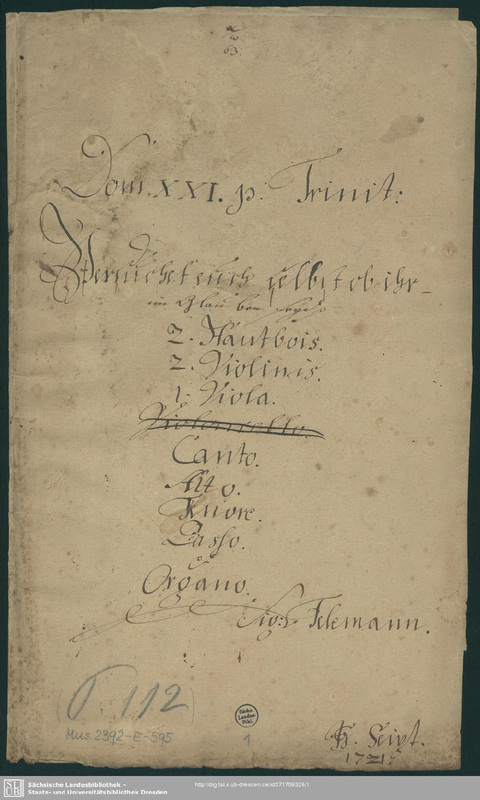 63.
Dom. XXI. p. Trinit:
Versuchet euch selbst ob ihr
im Glauben seyd.
2. Hautbois.
2. Violinis.
1. Viola.
Violoncello.
Canto.
Alto.
Tenore.
Basso.
Organo.
Sig:r Telemann.
T. 112
Mus. 2392-E-595
Sächs.
Landes-
Bibl.
1
Seipt.
1721.
SLUB
Sächsische Landesbibliothek -
Staats- und Universitätsbibliothek Dresden
http://digital.slub-dresden.de/id371709326/1